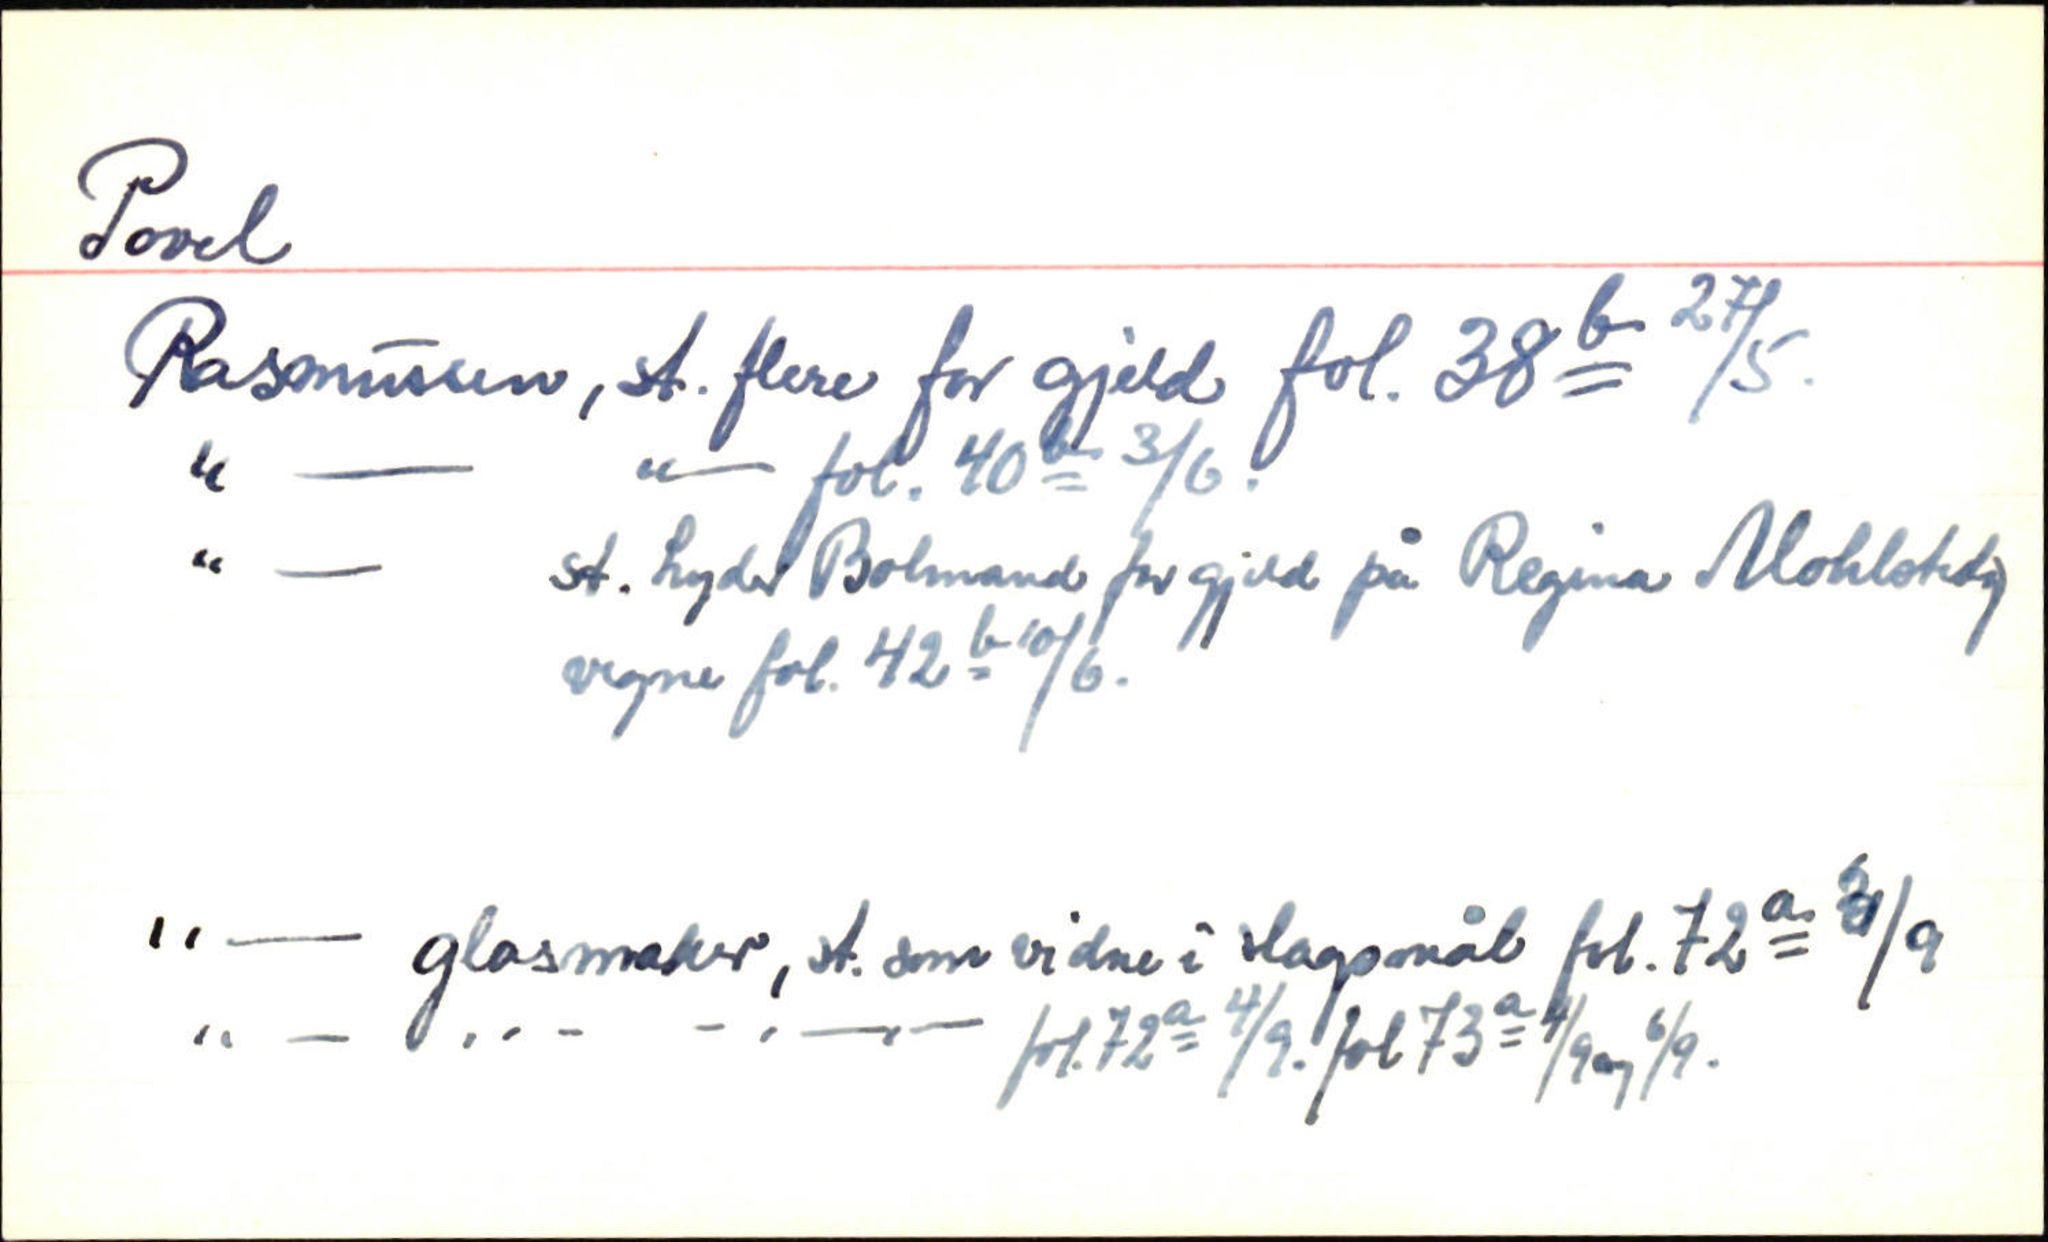 Povel
Rasmussen, st. flere for gjeld fol. 38b 27/5.
" — "— fol. 40b 3/6.
" — st. Lyder Bolmand for gjeld på Regina
vegne fol. 42b 10/6.
" — glasmaker, st. som vidne i slagsmål fol. 72a /9
" — " - - " — " — fol. 72a 4/9. fol 73a 4/9 og 6/9.